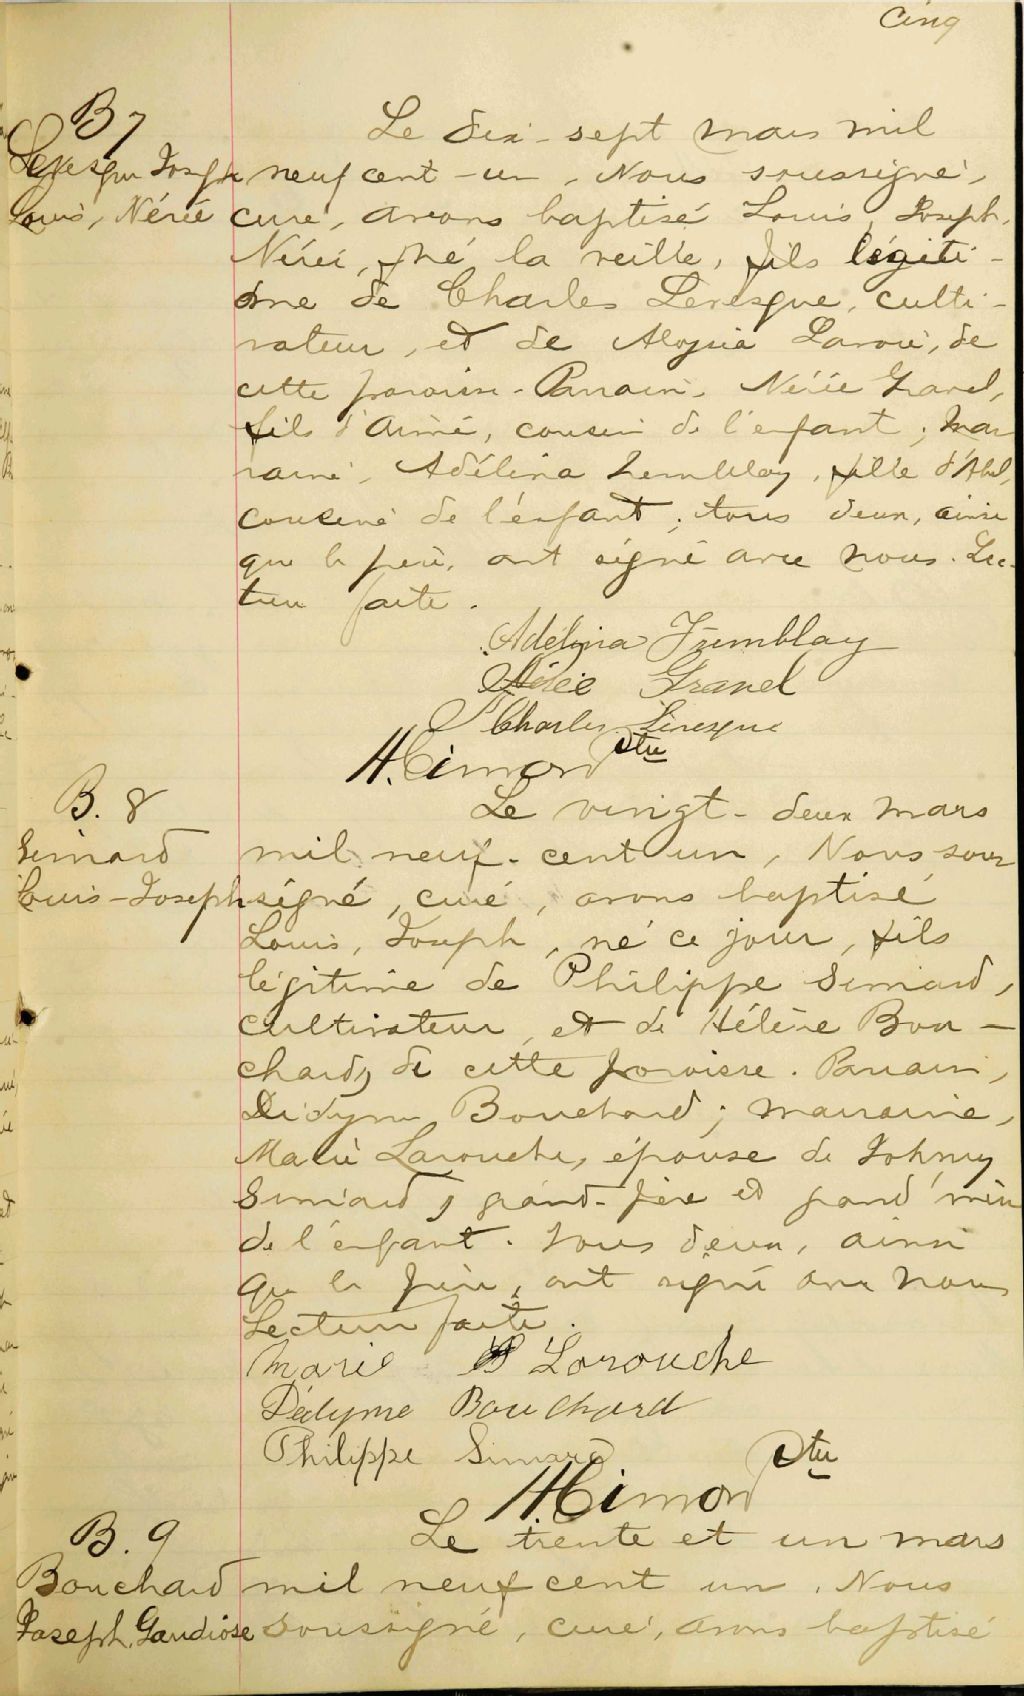 Cinq
B 7
Levesque Joseph
Louis, Nérée
Le dix-sept mars mil
neuf cent-un, Nous soussigné,
curé, avons baptisé Louis, Joseph,
Nérée, né la veille, fils légiti-
me de Charles Levesque, culti-
vateur, et de Aloysia Lavoie, de
cette paroisse. Parrain, Nérée Gravel,
fils d'Aimé, cousin de l'enfant; mar
raine, Adélina Tremblay, fille d'Abel,
cousine de l'enfant; tous deux, ainsi
que le père, ont signé avec nous. Lec-
ture faite.
Adélina Tremblay
Nérée Gravel
Charles Lévesque
H. Cimon Ptre
B. 8
Simard
Louis-Joseph
Le vingt-deux mars
mil neuf-cent un, Nous sous
signé, curé, avons baptisé
Louis, Joseph, né ce jour, fils
légitime de Philippe Simard,
cultivateur, et de Hélène Bou-
chard, de cette paroisse. Parrain,
Didyme Bouchard; marraine,
Marie Larouche, épouse de Johnny
Simard, grand-père et grand'mère
de l'enfant. Tous deux, ainsi
que le père, ont signé avec nous
Lecture faite.
Marie Larouche
Dédyme Bouchard
Philippe Simard
H. Cimon Ptre
B. 9
Bouchard
Joseph, Gaudiose
Le trente et un mars
mil neuf cent un, Nous
soussigné, curé, avons baptisé